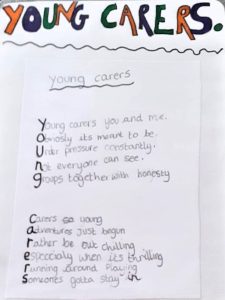 YOUNG CARERS.
young carers
Young carers you and me.
Obviosly its meant to be.
Under pressure constantly.
Not everyone can see.
groups together with honesty
Carers so young
adventures just begun
rather be out chilling
especially when its thrilling
running around Playing
Someones gotta stay in